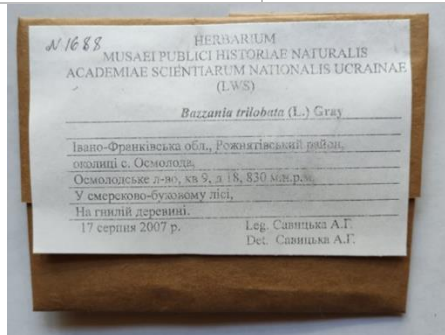 N 1688
HERBARIUM
MUSAEI PUBLICI HISTORIAE NATURALIS
ACADEMIAE SCIENTIARUM NATIONALIS UCRAINAE
(LWS)
Bazzania trilobata (L.) Gray
Івано-Франківська обл., Рожнятівський район,
околиці с. Осмолода,
Осмолодське л-во, кв 9, д 18, 830 м.н.р.м.
У смереково-буковому лісі,
На гнилій деревині.
17 серпня 2007 р. Leg. Савицька А.Г.
Det. Савицька А.Г.